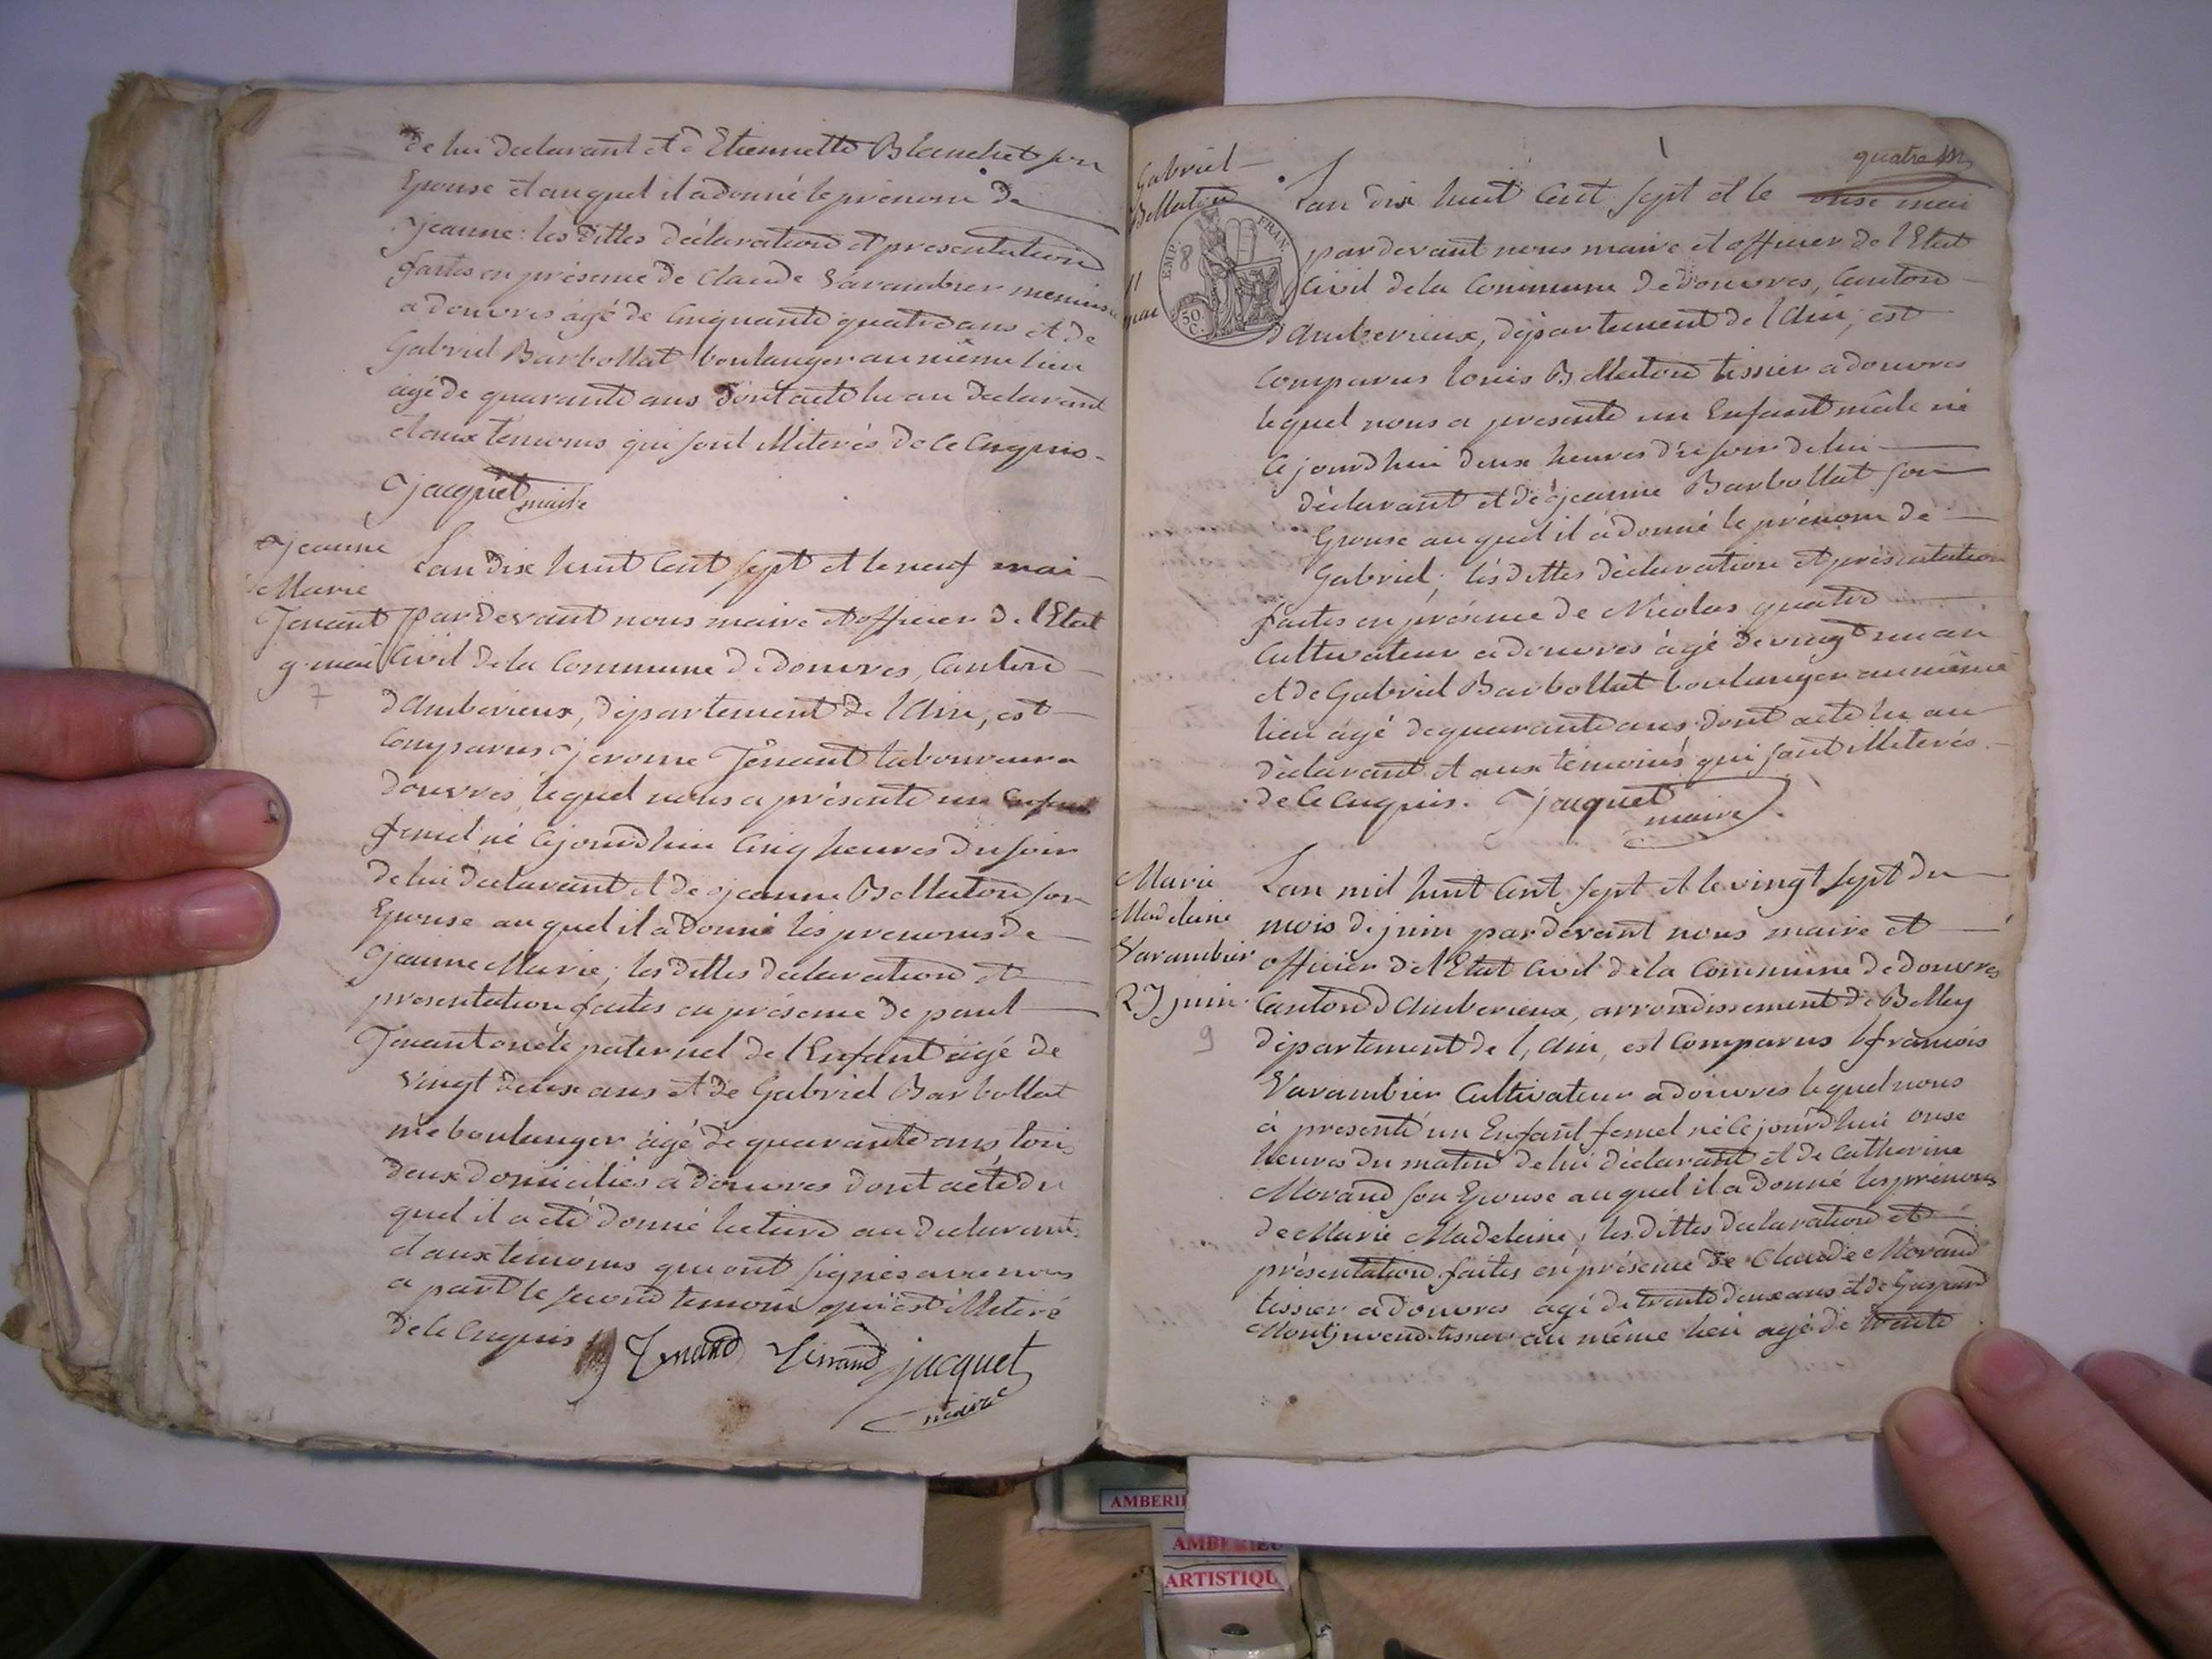 de lui declarant et d'Etiennette Blanchet son
Epouse et auquel il a donné le prenom de
Jeanne: les dittes déclaration et presentation
faites en présence de Claude Varambier menuisier
a douvres agé de Cinquante quatre ans et de
Gabriel Barbollat boulanger au même lieu
âgé de quarante ans dont acte lu au declarant
et aux temoins qui sont illiterés de ce Enquis.
Jacquet maire
Jeanne
Marie
Tenant
9 mai
7
Lan dix huit Cent sept et le neuf mai
pardevant nous maire et officier de l'Etat
Civil de la Commune de douvres, Canton
d'Amberieux, département de l'Ain, est
Comparus Jerome Tenant laboureur a
douvres, lequel nous a présenté un Enfant
femel né Cejourdhui Cinq heures du soir
de lui declarant et de Jeanne Bellaton son
Epouse auquel il a donné les prenoms de
Jeanne Marie; les dittes declaration et
presentation faites en présence de paul
Tenant oncle paternel de l'Enfant âgé de
Vingt deux ans et de Gabriel Barbollat
me boulanger âgé de quarante ans tous
deux domiciliés a douvres dont acte du
quel il a été donné lecture au declarant
et aux temoins qui ont signés avec nous
a part le second temoin qui est illiteré
de ce Enquis
Tenand Tenand jacquet
maire
quatre
Gabriel
Bellaton
11
mai
EMP. FRAN.
8
50
C.
Lan dix huit Cent sept et le onse mai
pardevant nous maire et officier de l'Etat
Civil de la Commune de douvres, Canton
d'Amberieux, département de l'Ain, est
Comparus Louis Bellaton tissier a douvres
lequel nous a presenté un Enfant mâle né
Cejourdhui deux heures du soir de lui
déclarant et de Jeanne Barbollat son
Epouse auquel il a donné le prénom de
Gabriel; les dittes déclaration et présentation
faites en présence de Nicolas quatre
Cultivateur a douvres âgé de vingt un an
et de Gabriel Barbollat boulanger au même
lieu âgé de quarante ans, dont acte lu au
déclarant et aux temoins qui sont illiterés
de ce Enquis. Jacquet
maire
Marie
Madelaine
Varambier
27 juin
9
Lan mil huit Cent sept et le vingt sept du
mois de juin pardevant nous maire et
officier de l'Etat Civil de la Commune de douvres
Canton d'Amberieux, arrondissement de Belley
département de l'Ain, est Comparus francois
Varambier Cultivateur a douvres lequel nous
à presenté un Enfant femel né Cejourdhui onse
heures du matin de lui déclarant et de Catherine
Morand son Epouse auquel il a donné les prénoms
de Marie Madelaine; les dittes declaration et
présentation faites en présence de Claude Morand
tissier a douvres agé de trente deux ans et de Gaspard
Montjuvend tissier au même lieu agé de trente
AMBERIEU
ARTISTIQU